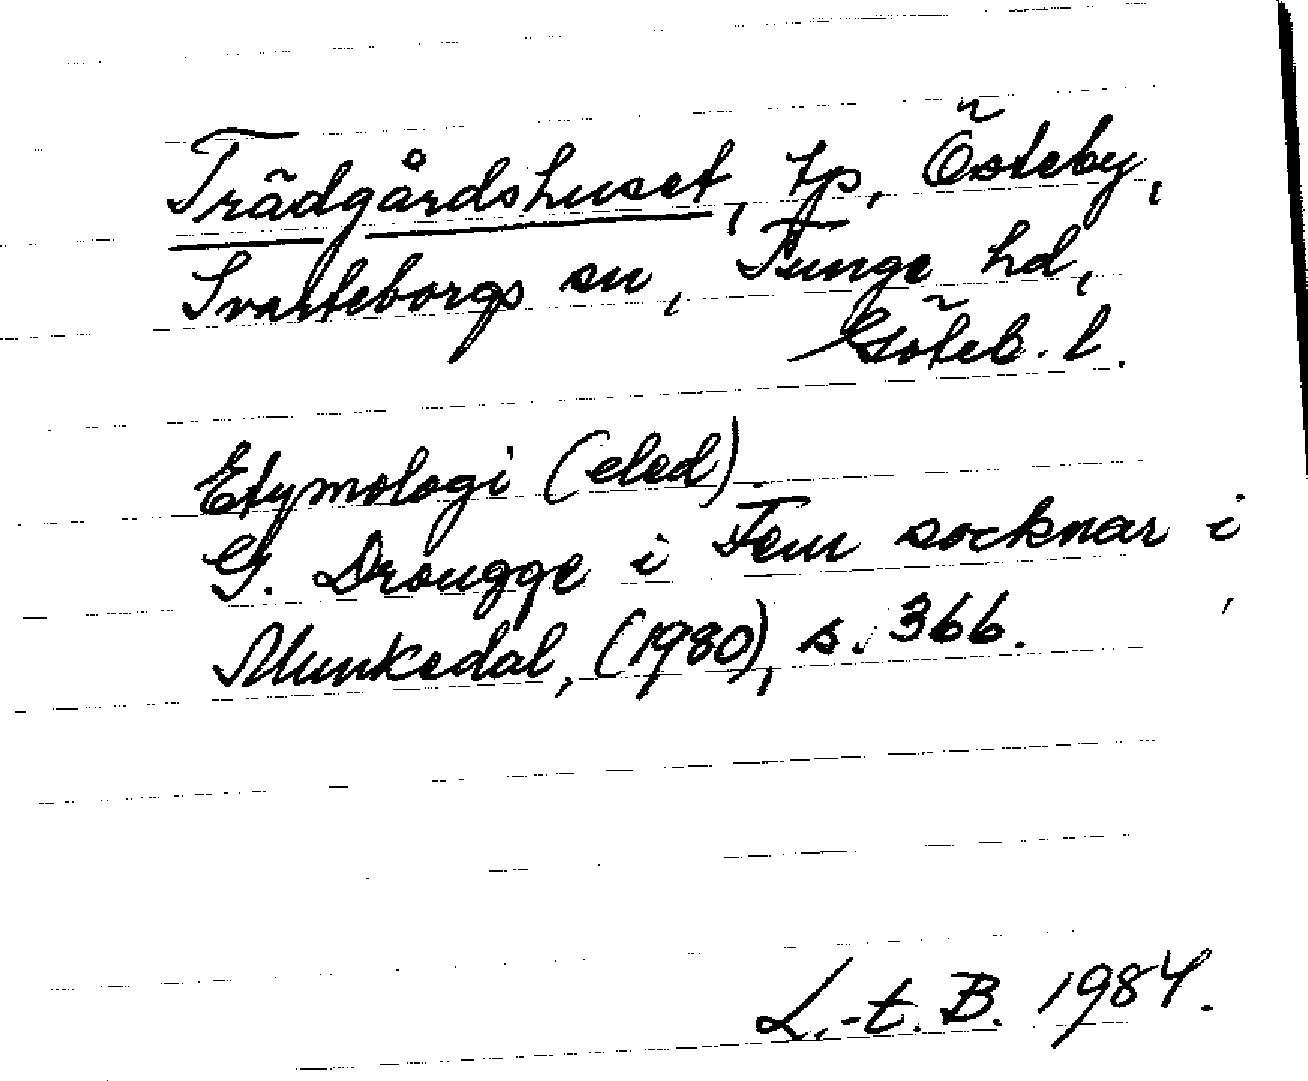 Trädgårdshuset, tp, Österby,
Svarteborgs sn, Tunge hd,
Göteb. l.
Etymologi (eled).
G. Drougge i Fem socknar i
Munkedal, (1980), s. 366.
L.-t. B. 1984.